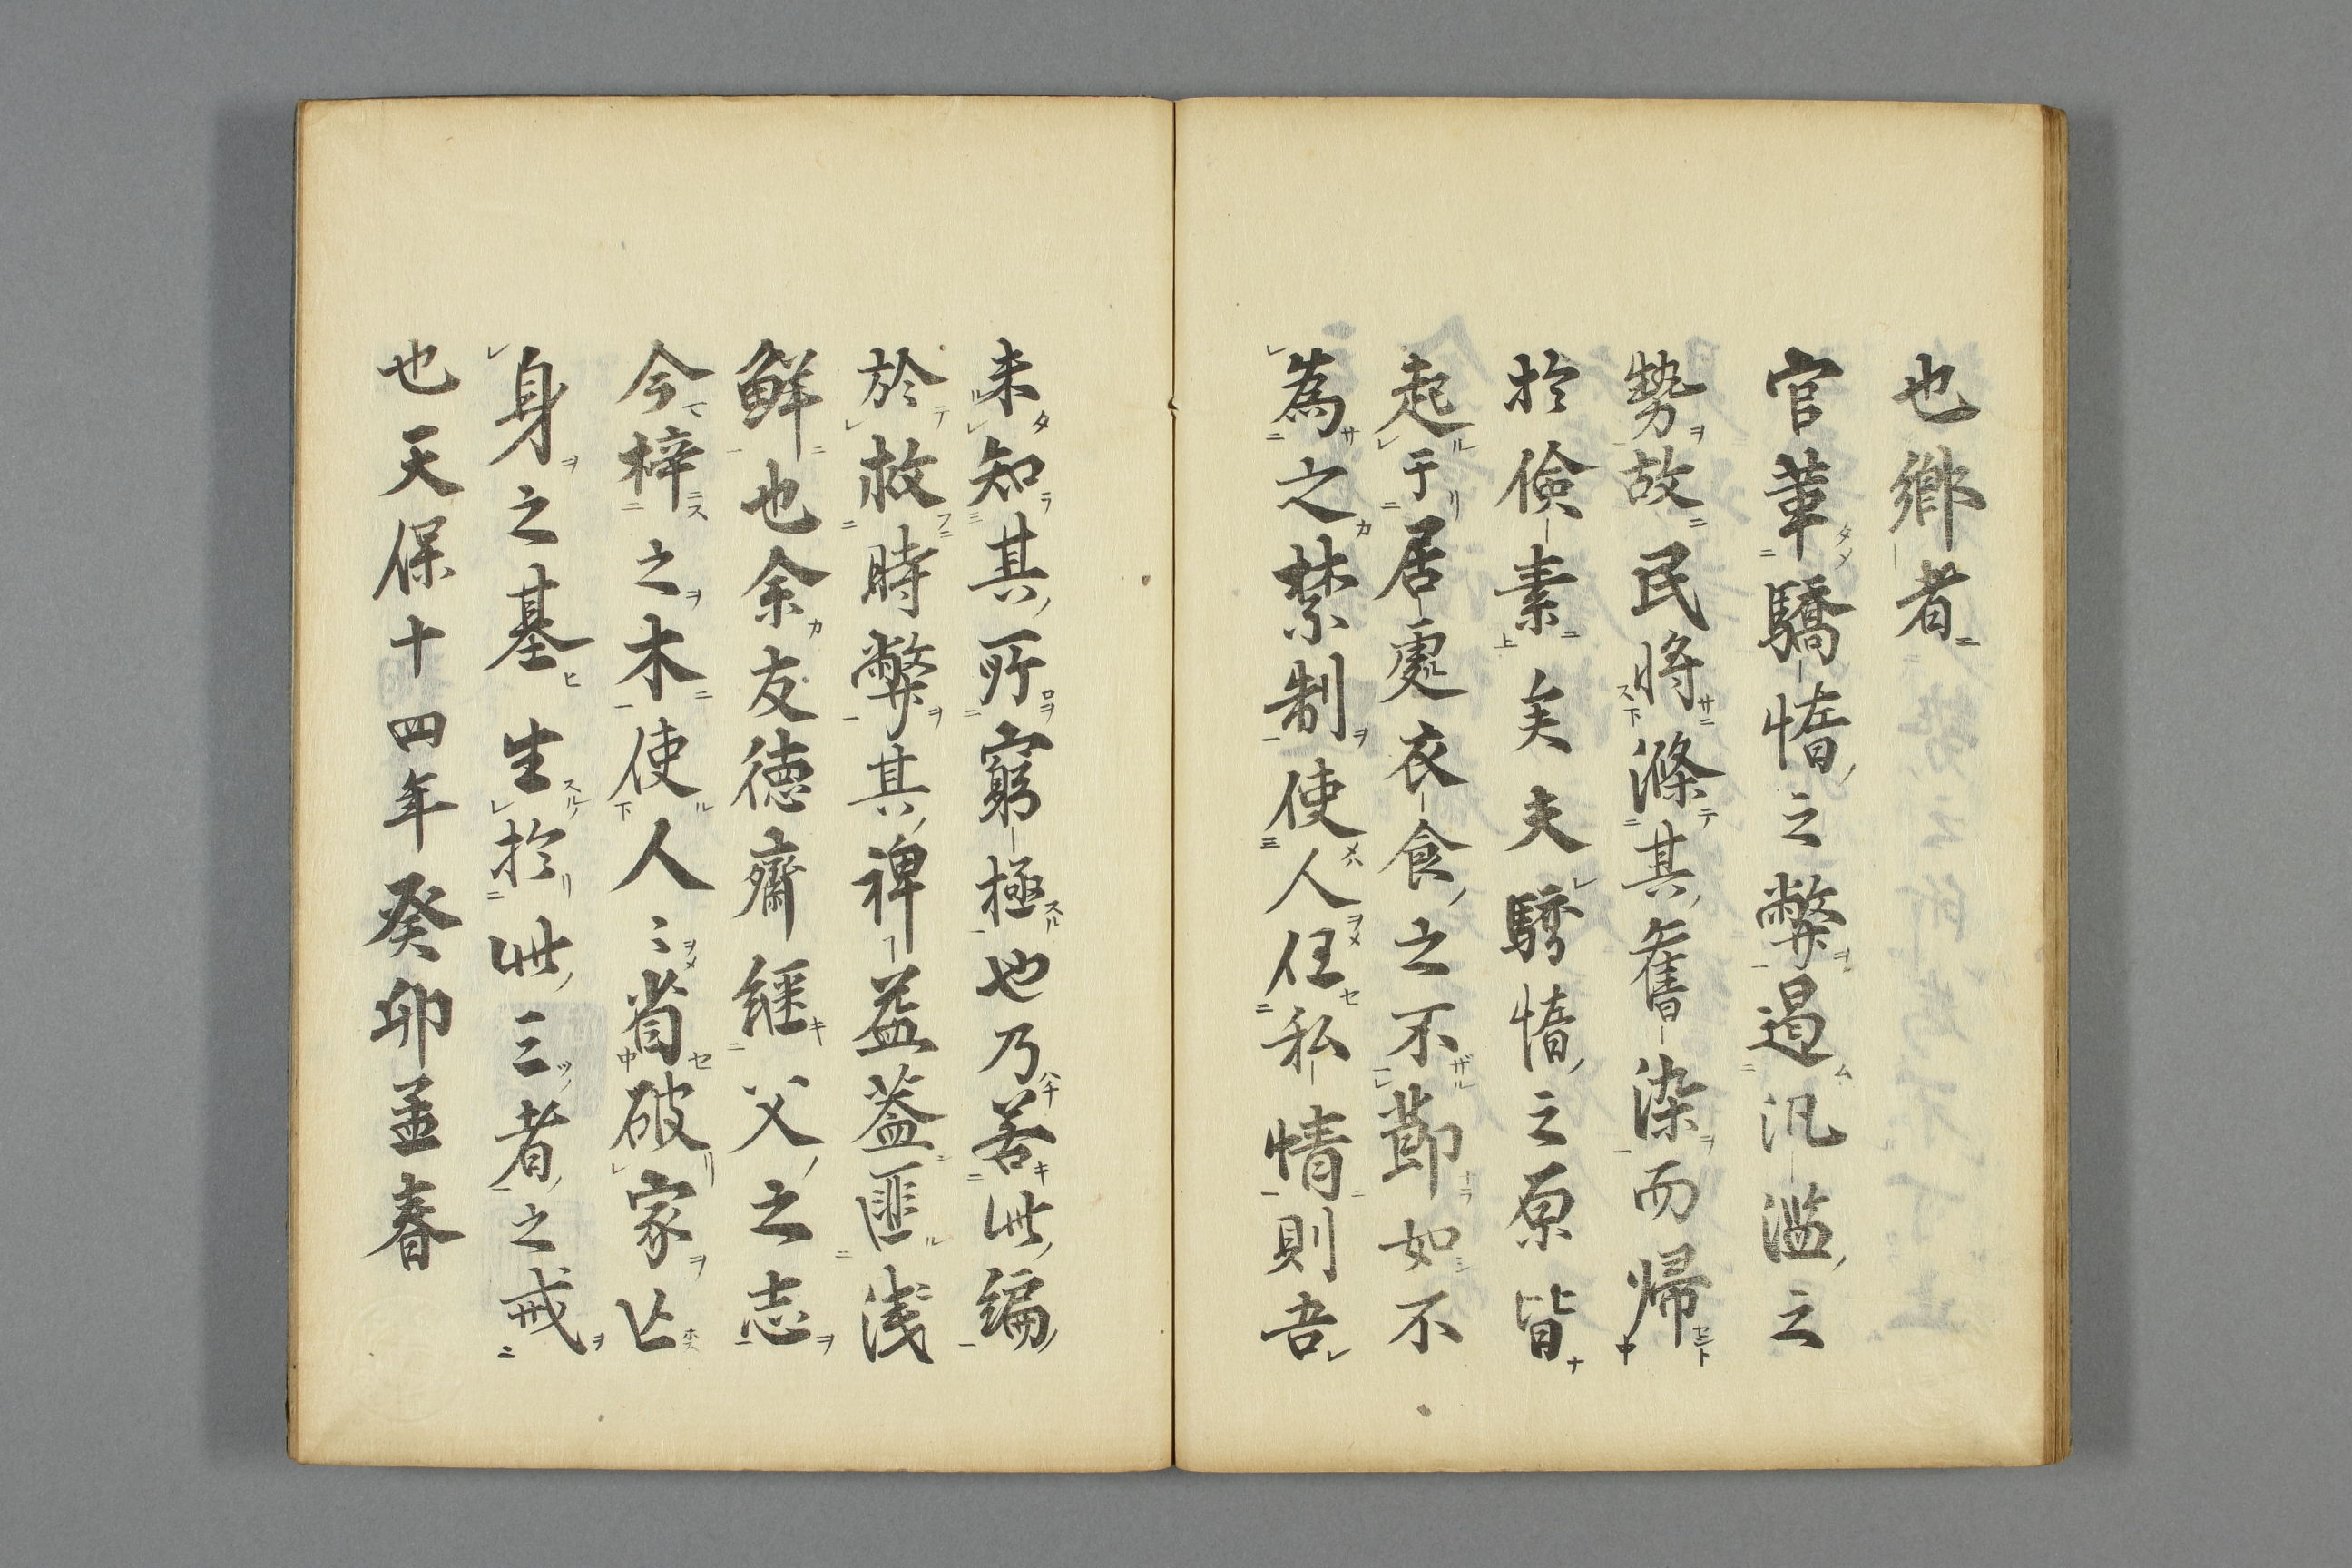 也鄉者
官革驕惰之弊遏汎濫之
勢故民將滌其舊染而帰
於儉素矣夫驕惰之原皆
起于居處衣食之不節如不
為之禁制使人任私情則吾
未知其所窮極也乃若此編
於救時弊其裨益蓋匪淺
鮮也余友徳齋継父之志
今梓之木使人〻省破家亡
身之基生於此三者之戒
也天保十四年癸卯孟春